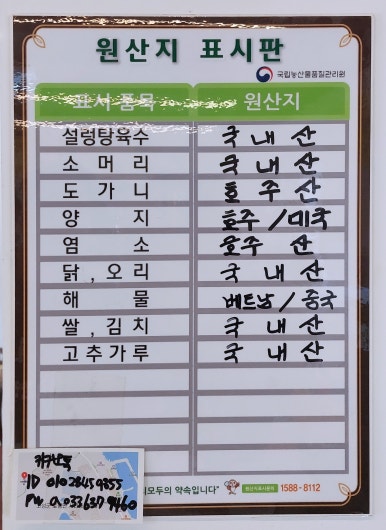 원산지 표시판
국립농산물품질관리원
표시품목 원산지
설렁탕육수 국내산
소머리 국내산
도가니 호주산
양지 호주/미국
염소 호주산
닭, 오리 국내산
해물 베트남/중국
쌀, 김치 국내산
고추가루 국내산
모두의 약속입니다"
원산지표시문의 1588-8112
ID 01028459355